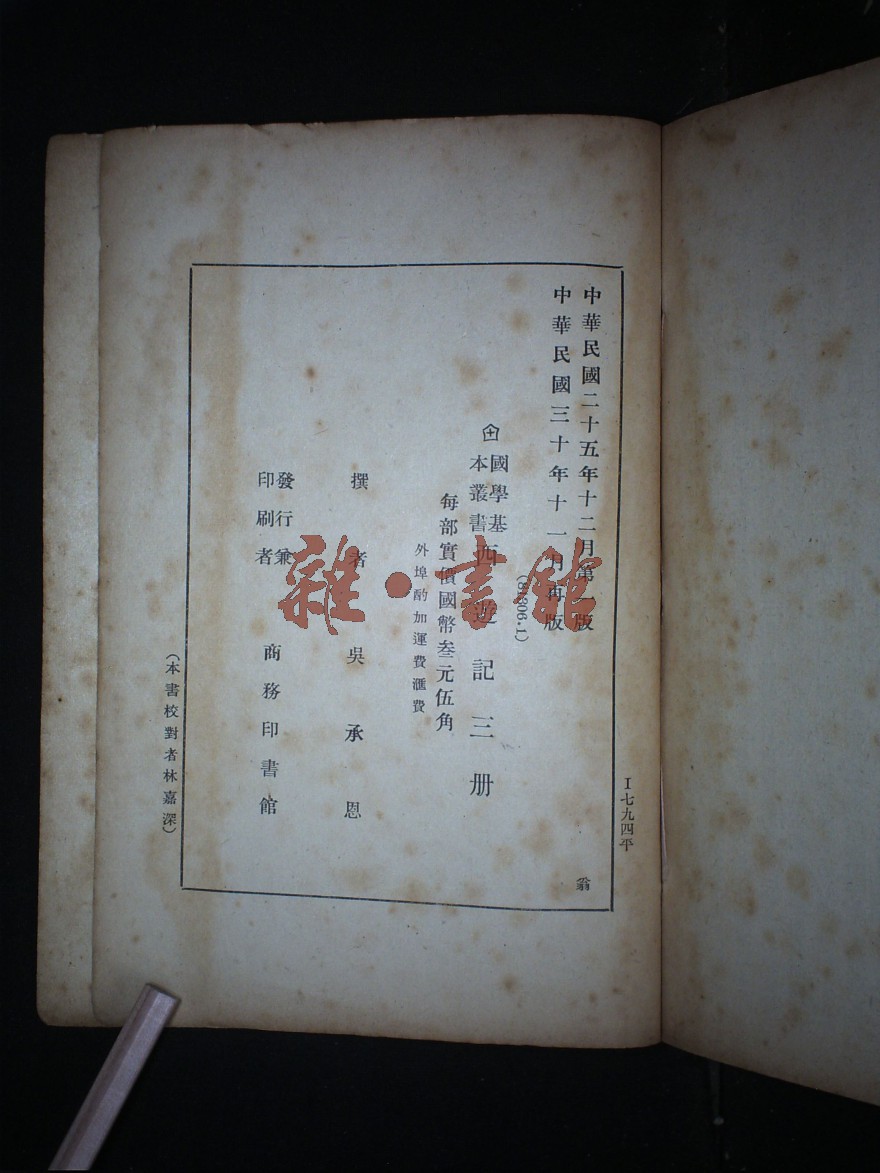 中華民國二十五年十二月第 版
中華民國三十年十一月再版
(8 306.1)
國學基本叢書 西遊記三册
每部實價國幣叁元伍角
外埠酌加運費滙費
撰者 吳承恩
發行兼
印刷者 商務印書館
(本書校對者林嘉深)
I七九四平
翁
雜·書館